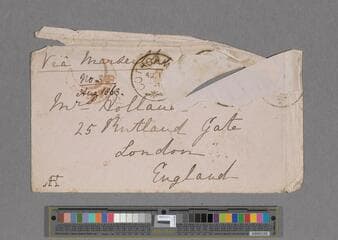 Via Marseilles
Aug 1863.
Mr Holland
25 Rutland Gate
London
England